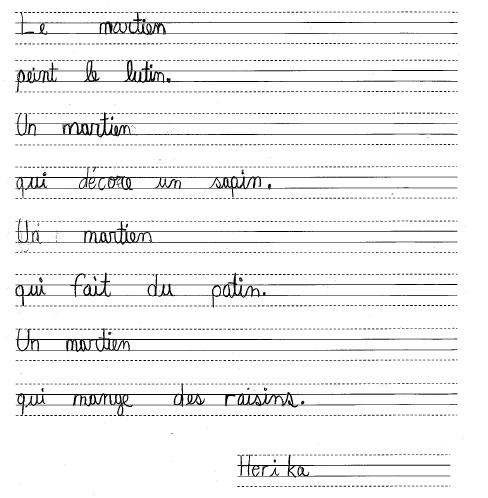 Le martien
peint le lutin.
Un martien
qui décore un sapin.
Un martien
qui fait du patin.
Un martien
qui mange des raisins.
Herika